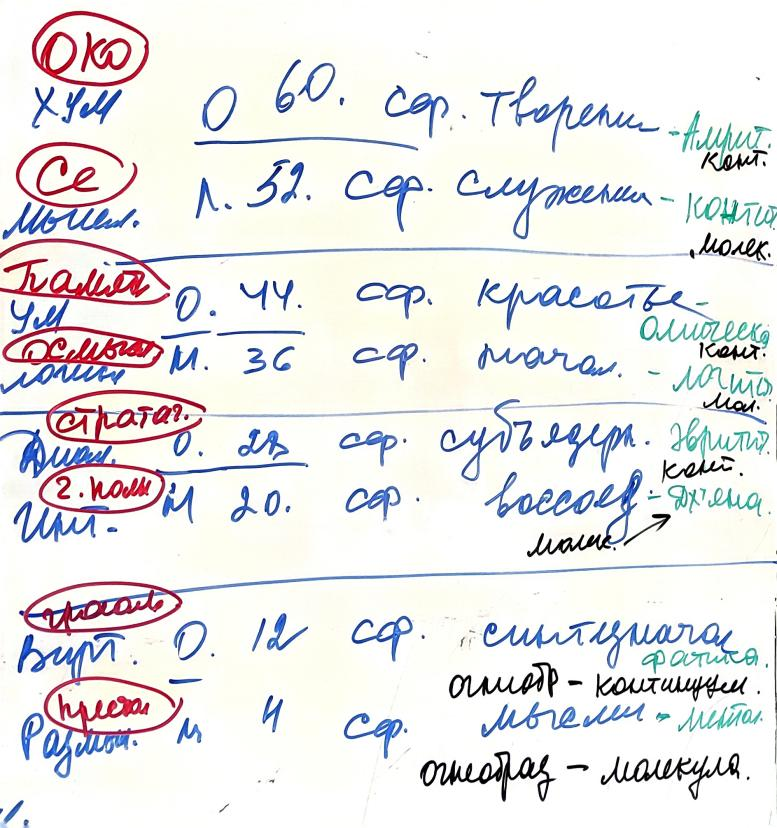 ОКО
ХУМ О 60. сф. Творения - Амрит.
Конт.
Се
Мышл. М. 52. сф. служения - контин
молек.
Память
УМ О. 44. сф. красоты -
Омическа
Конт.
осмысл
логика М. 36 сф. начал. - логит
мол.
стратаг.
О. 28 сф. субъядерн. эвритит.
конт.
г. полн
Инт. М 20. сф. воссоед - Дх'яна.
молек.
грааль
Вирт. О. 12 сф. синтезначал
фатика.
огнеобр - континуум.
престол
Размыш. м 4 сф. мысли - ментал.
огнеобраз - молекула.